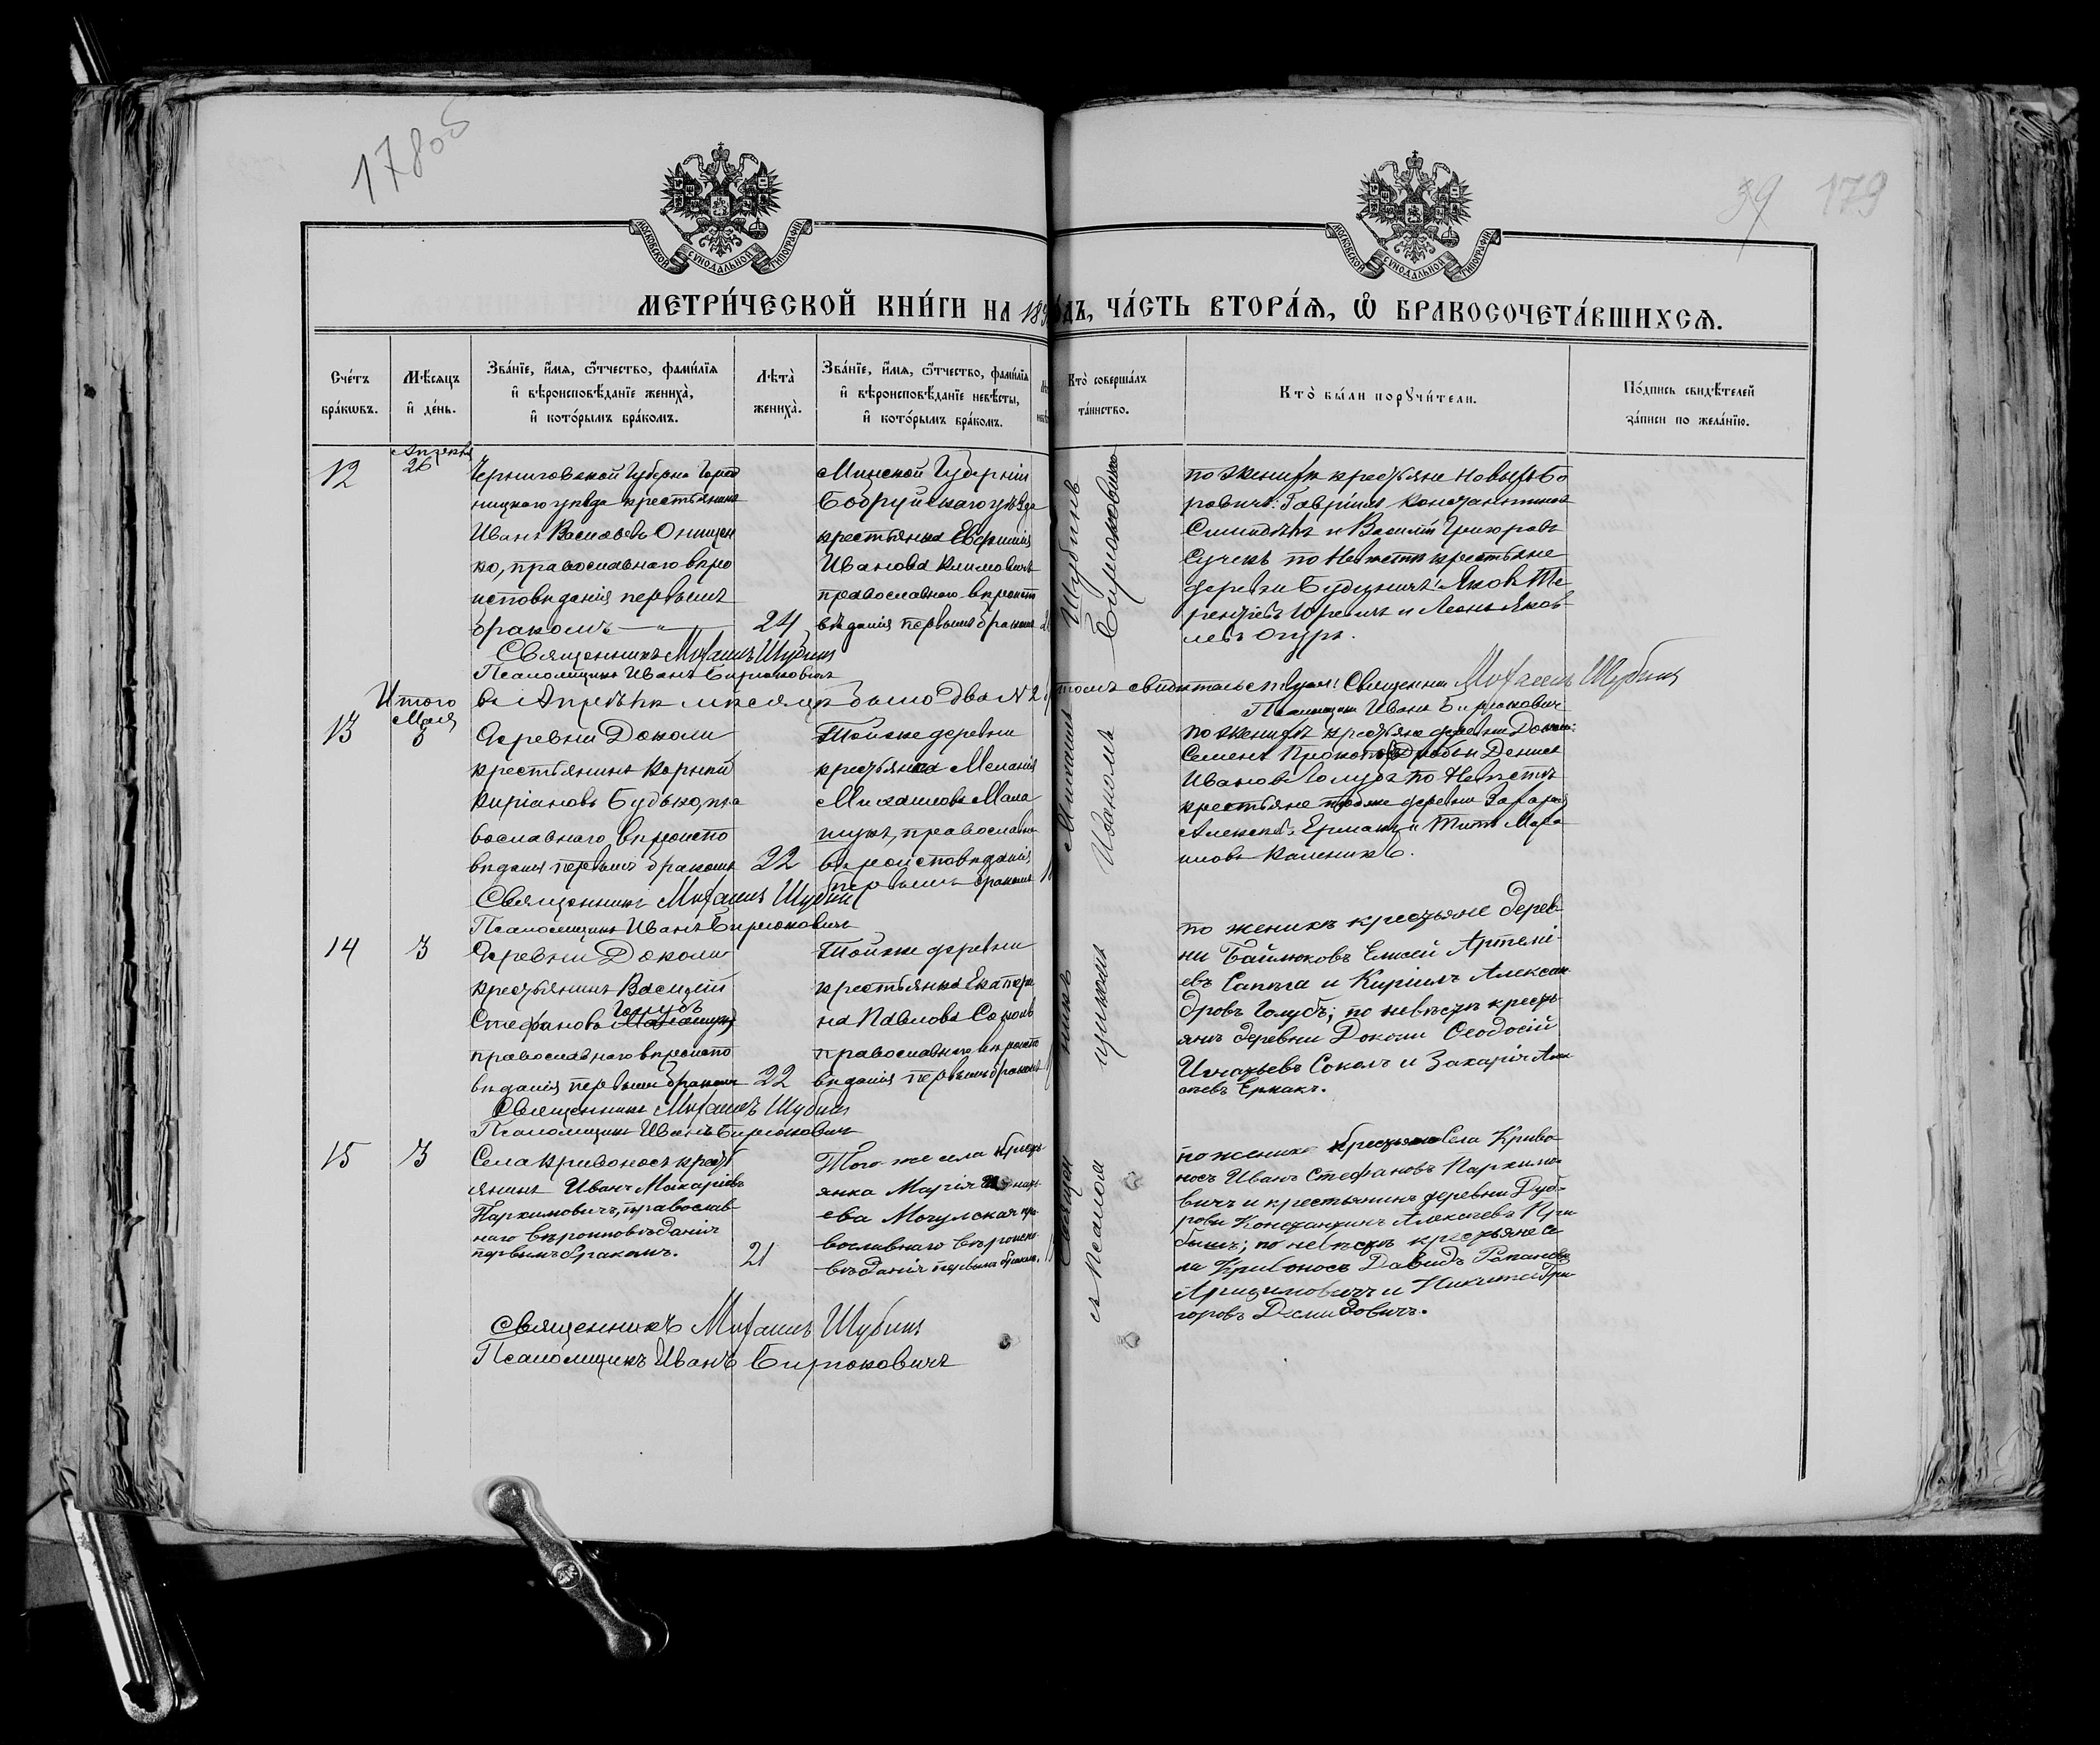 178об
39 179
МОСКОВСКОЙ СѴНОДАЛЬНОЙ ТИПОГРАФІИ
МОСКОВСКОЙ СѴНОДАЛЬНОЙ ТИПОГРАФІИ
МЕТРИ́ЧЕСКОЙ КНИ́ГИ НА 189 ДЪ, ЧА́СТЬ ВТОРА́Я, Ѿ БРАКОСОЧЕТА́ВШИХСЯ.
Сче́тъ бра́кωвъ.
Мѣ́сяцъ и҆ де́нь.
Зва́нїе, и҆́мя, ѻ҆́тчество, фами́лїя и҆ вѣроисповѣ́данїе жениха̀, и҆ кото́рымъ бра́комъ.
Лѣта̀ жениха̀.
Зва́нїе, и҆́мя, ѻ҆́тчество, фами́лїя и҆ вѣроисповѣ́данїе невѣ́сты, и҆ кото́рымъ бра́комъ.
Кто̀ соверша́лъ та́инство.
Кто̀ бы́ли порꙋчи́тели.
По́дпись свидѣ́телей за́писи по жела́нїю.
12
Апрѣля
26
Черниговской Губерніи Город
ницкаго уѣзда крестьянинъ
Иванъ Васильевъ Онищен
ко, православнаго вѣро
исповѣданія первымъ
бракомъ
24
Минской Губерніи
Бобруйскаго уѣзда
крестьянка
Иванова Климовичъ
православнаго вѣроисп
вѣданія первымъ бракомъ
по женихѣ крестьяне Новыхъ Бо
ровичъ: Гавріилъ Константиновъ
и Василій Григоровъ
Сучекъ по Невѣстѣ крестьяне
деревни Яковъ Те
рентіевъ и Леонъ Яков
левъ Огурь.
Священникъ Михаилъ Шубинъ
Псаломщикъ Иванъ Бирюковичъ
Итого въ Апрѣлѣ мѣсяцѣ было два № 2 томъ свидѣтельствуемъ: Священникъ Михаилъ Шубинъ
Псаломщикъ Иванъ Бирюковичъ
13
Мая
3
Деревни Доколи
крестьянинъ Корній
Кипріановъ Будько, пра
вославнаго вѣроиспо
вѣданія первымъ бракомъ
22
Тойже деревни
крестьянка Меланія
Михаилова Мала
шукъ, православн
вѣроисповѣданія
первымъ бракомъ
по женихѣ крестьяне деревни Доколи:
Семенъ Прокопіевъ и Денисъ
Ивановъ Голубъ по Невѣстѣ
крестьяне тойже деревни Захарій
Алексѣевъ Ермакъ и Титъ Мара
Каленикъ.
Священникъ Михаилъ Шубинъ
Псаломщикъ Иванъ Бирюковичъ
14
3
Деревни Доколи
крестьянинъ Василій
Голубъ
Стефановъ
православнаго вѣроиспо
вѣданія первымъ бракомъ
22
Тойже деревни
крестьянка Екатери
на Павлова Соколъ
православнаго вѣроиспо
вѣданія первымъ бракомъ
по женихѣ крестьяне дерев
ни Байлюковъ Елисей Артемі
евъ Сапега и Кириллъ Алексан
дровъ Голубъ; по невѣстѣ кресть
янъ деревни Доколи Ѳеодосій
Игнатьевъ Соколъ и Захарія Алек
сѣевъ Ермакъ.
Священникъ Михаилъ Шубинъ
Псаломщикъ Иванъ Бирюковичъ
15
3
Села Кривоносъ крестъ
янинъ Иванъ Макаріевъ
Пархимовичъ, православ
наго вѣроисповѣданія
первымъ бракомъ.
21
Того же села кресть
янка Марія
ева Могулская пра
вославнаго вѣроиспо
вѣданія первымъ бракомъ.
по женихѣ крестьяне Села Криво
носъ Иванъ Стефановъ Пархимо
вичъ и крестьянинъ деревни Дуб
ровы Константинъ Алексѣевъ
по невѣстѣ крестьяне се
ла Кривоносъ Давидъ
и Никита Гри
горовъ Демидовичъ.
Священникъ Михаилъ Шубинъ
Псаломщикъ Иванъ Бирюковичъ
Священ никъ Михаилъ Шубинъ
съ Псалом щикомъ Иваномъ Бирюковичемъ